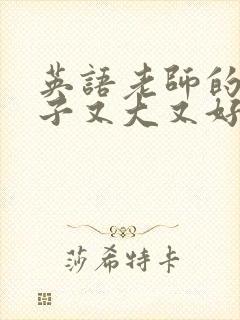 英語老師的
子又大又好
莎希特卡